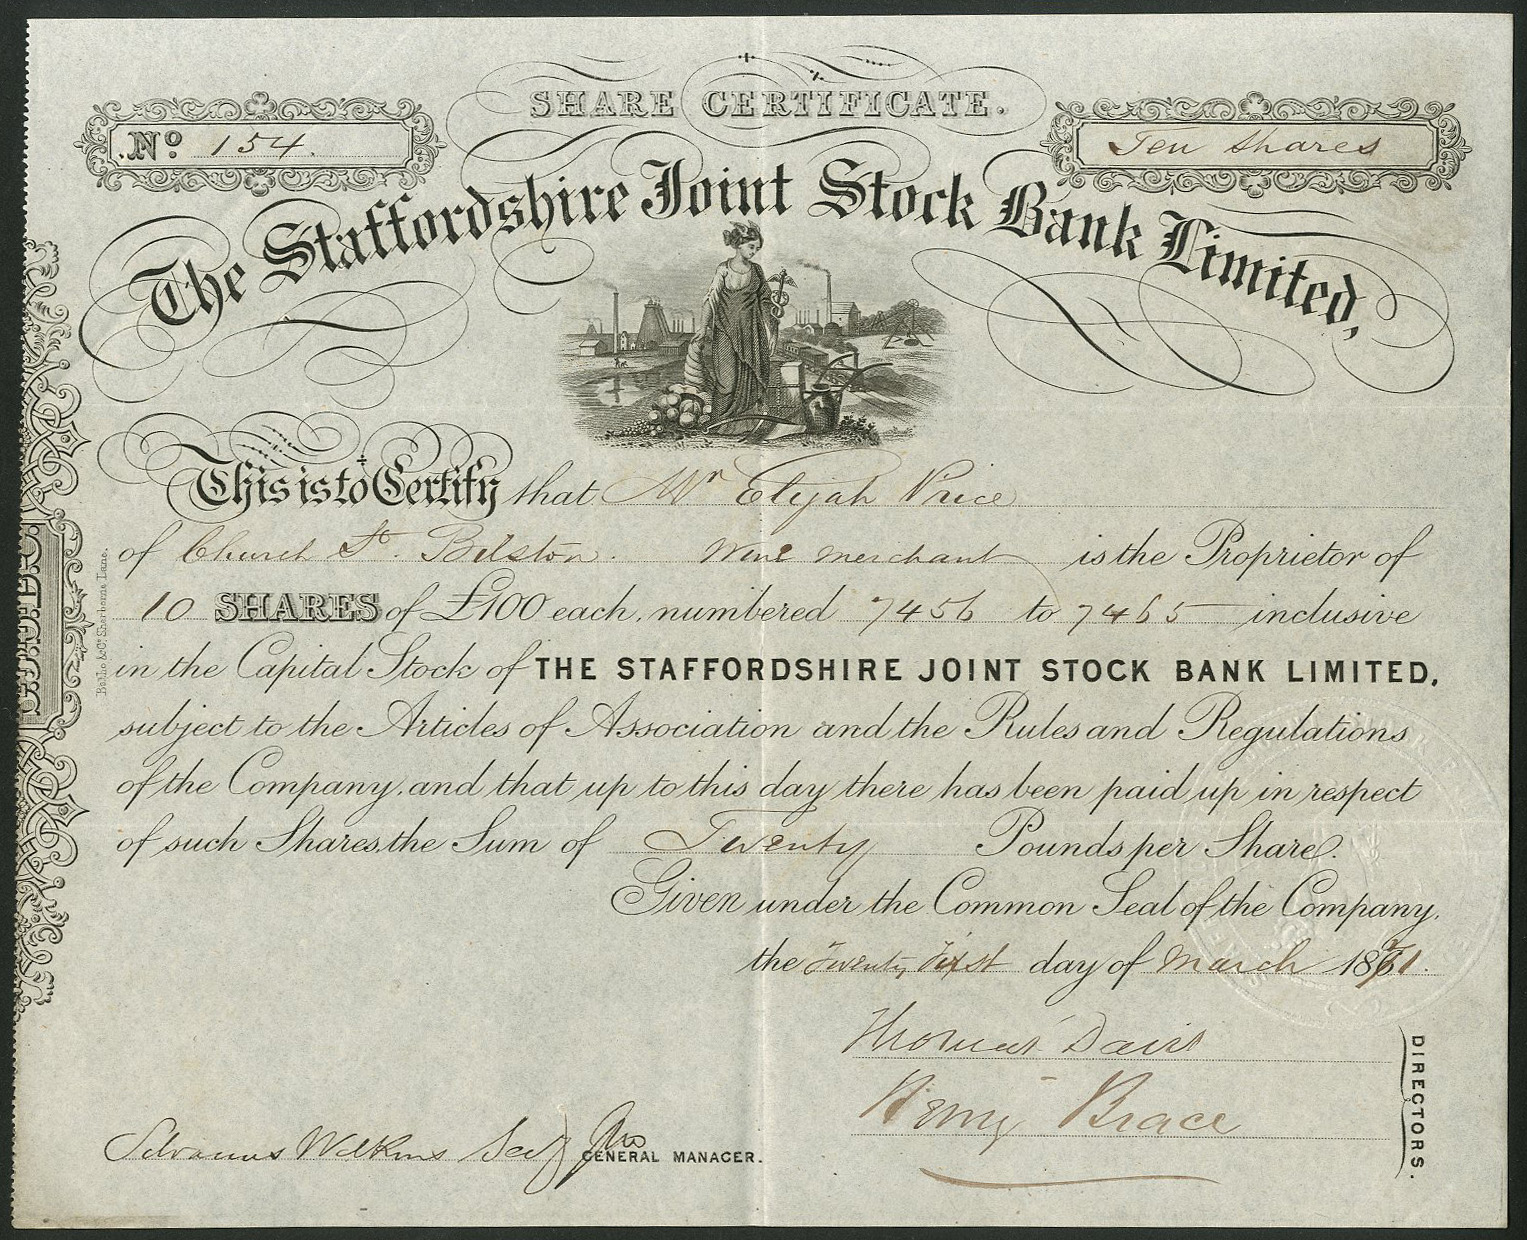 SHARE CERTIFICATE.
No 154.
Ten shares
The Staffordshire Joint Stock Bank Limited,
This is to Certify that Mr Elijah Price
of Church St. Bilston. Wine merchant is the Proprietor of
10 SHARES of £100 each, numbered 7456 to 7465 inclusive
in the Capital Stock of THE STAFFORDSHIRE JOINT STOCK BANK LIMITED,
subject to the Articles of Association and the Rules and Regulations
of the Company, and that up to this day there has been paid up in respect
of such Shares, the Sum of Twenty Pounds per Share.
Given under the Common Seal of the Company,
the Twenty First day of March 1871.
Thomas Davis
Henry Brace
DIRECTORS.
Wilkins Secy
GENERAL MANAGER.
Sherborne Lane.